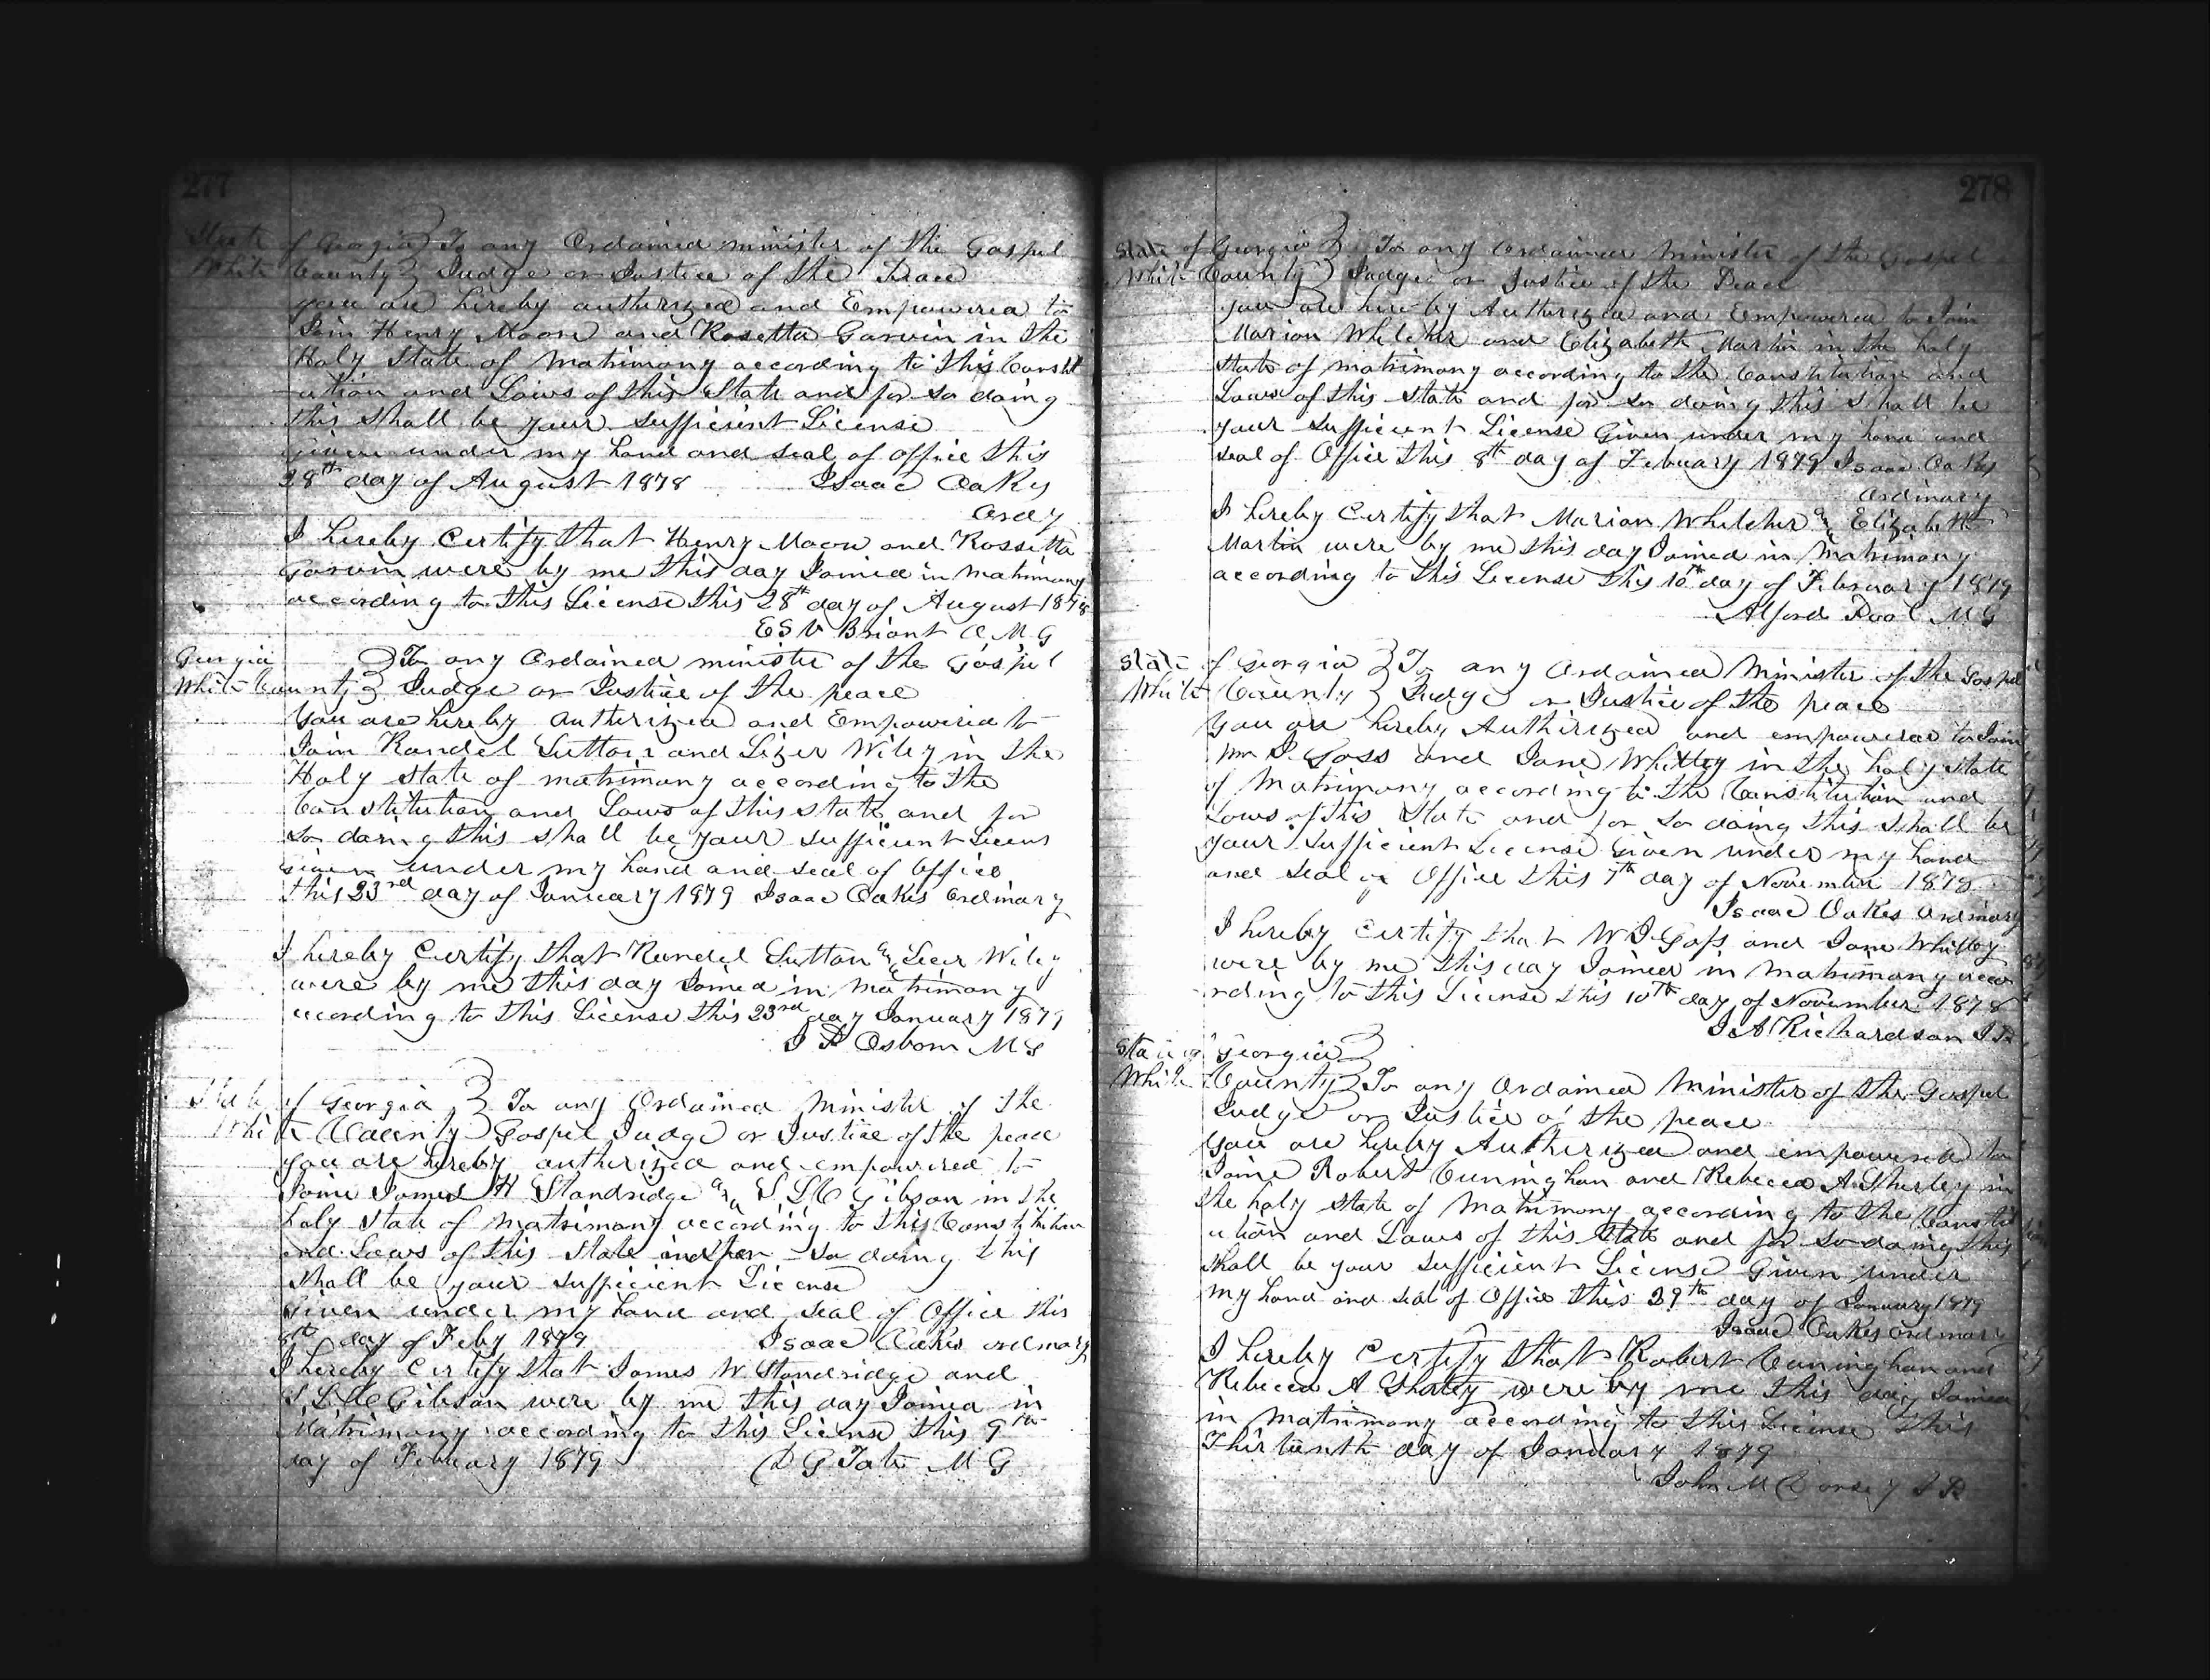 277
State of Georgia } To any Ordained minister of the Gospel
White County } Judge or Justice of the Peace
you are hereby autherized and Empowered to
Join Henry Moore and Rosetta Garvin in the
Holy State of Matrimony according to this Constit
ution and Laws of this State and for so doing
this shall be your sufficient License
Given under my hand and seal of office this
28th day of August 1878 Isaac Oakes
Ordy
I hereby Certify that Henry Moore and Rossetta
Garvin were by me this day Joined in Matrimony
according to this License this 28th day of August 1878
E S V Briant O M G
Georgia } To any Ordained minister of the Gospel
White County } Judge or Justice of the peace
You are hereby autherized and Empowered to
Join Randel Sutton and Lizer Wiley in the
Holy state of matrimony according to the
Constitution and Laws of this state and for
so doing this shall be your sufficient Licens
given under my hand and seal of office
this 23rd day of January 1879 Isaac Oakes Ordinary
I hereby Certify that Randel Sutton & Lizer Wiley
were by me this day Joined in matrimony
according to this License this 23rd day January 1879
Osborn M G
State of Georgia } To any Ordained Minister of the
White County } Gospel Judge or Justice of the peace
you are hereby autherized and empowered to
Joine James H Standridge & S L C Gibson in the
holy state of matrimony according to this Constitution
and Laws of this State and for so doing this
shall be your sufficient License
Given under my hand and seal of Office this
8th day of Feby 1879 Isaac Oakes ordinary
I hereby Certify that James W Standridge and
S. L. C Gibson were by me this day Joined in
Matrimony according to this License this 9th
day of Febuary 1879 D G Tate M G
278
State of Georgia } To any Ordained Minister of the Gospel
White County } Judge or Justice of the Peace
you are hereby Autherized and Empowered to Join
Marion Whelcher and Elizabeth Martin in the holy
State of matrimony according to the Constitution and
Laws of this state and for so doing this shall be
your sufficient License Given under my hand and
seal of Office this 8th day of Febuary 1879 Isaac Oakes
Ordinary
I hereby Certify that Marion Whelcher & Elizabeth
Martin were by me this day Joined in Matrimony
according to this License this 10th day of February 1879
Alford Pool M G
State of Georgia } To any Ordained Minister of the Gospel
White County } Judge or Justice of the peace
You are hereby Autherized and empowered to Join
Wm J. Goss and Jane Whitley in the holy state
of Matrimony according to the Constitution and
Laws of this State and for so doing this shall be
your sufficient License Given under my hand
and seal of Office this 7th day of November 1878
Isaac Oakes Ordinary
I hereby Certify that W J. Goss and Jane Whitley
were by me this day Joined in Matrimony acco
rding to this License this 10th day of November 1878
J A Richardson J P
State of Georgia }
White County } To any Ordained Minister of the Gospel
Judge or Justice of the peace
you are hereby Autherized and empowered to
Joine Robert Cuninghan and Rebecca A Sherley in
the holy state of Matrimony according to the Constit
ution and Laws of this State and for so doing this
shall be your sufficient License Given under
my hand and seal of Office this 29th day of January 1879
Isaac Oakes ordinary
I hereby Certify that Robert Cuninghan and
Rebecca A were by me this day Joined
in matrimony according to this License this
Thirtienth day of January 1879
John M Dorsey J P